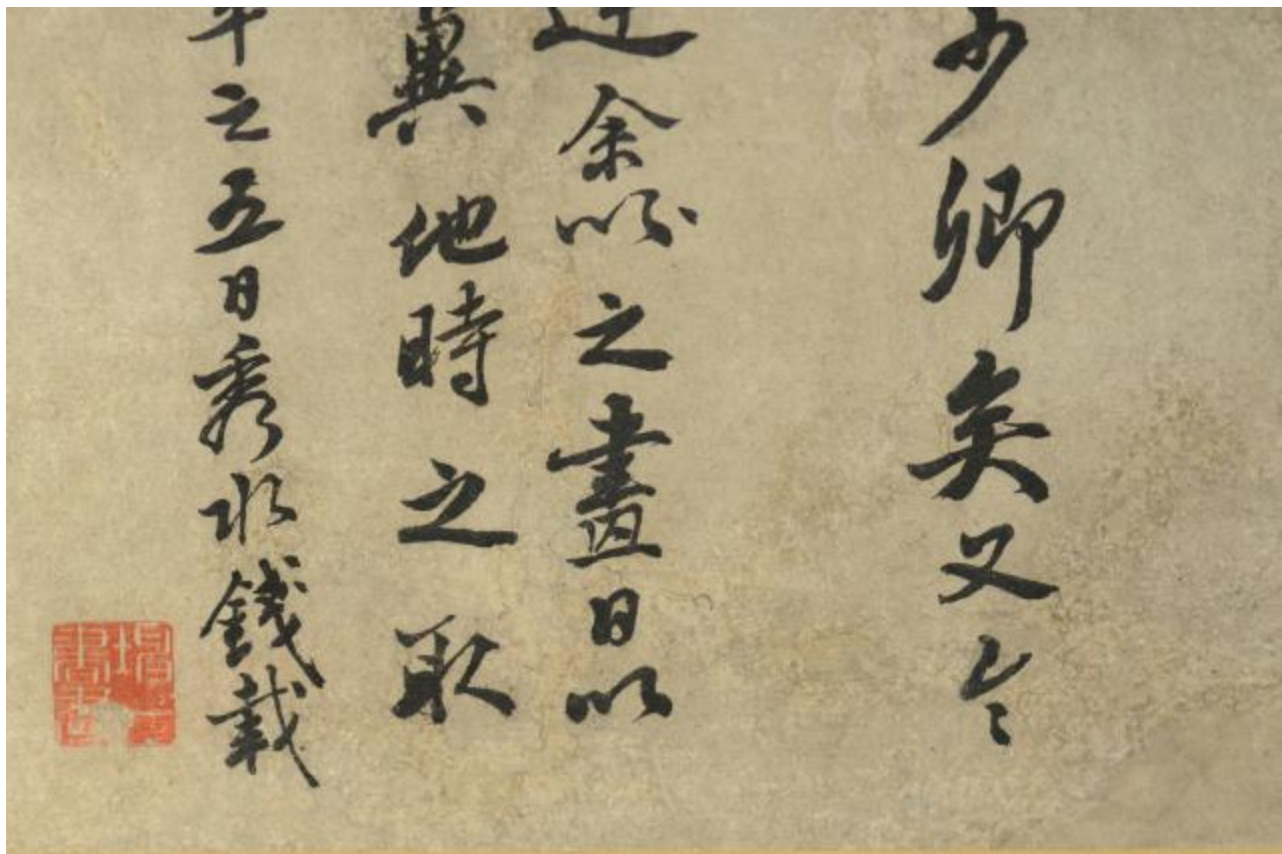 少卿矣又今
余之畫日以
冀他時之取
之五日秀水錢載